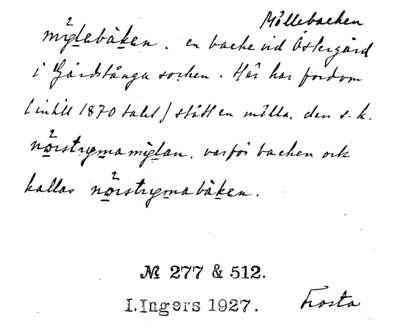 Möllebacken
mı̨̈glebäken. en backe vid Östergård
i Gårdstånga socken. Här har fordom
(intill 1870 talet) stått en mölla, den s.k.
nörstrygmamı̨glan, varför backen ock
kallas nörstrygmabäken.
№ 277 & 512.
I.Ingers 1927. Frosta